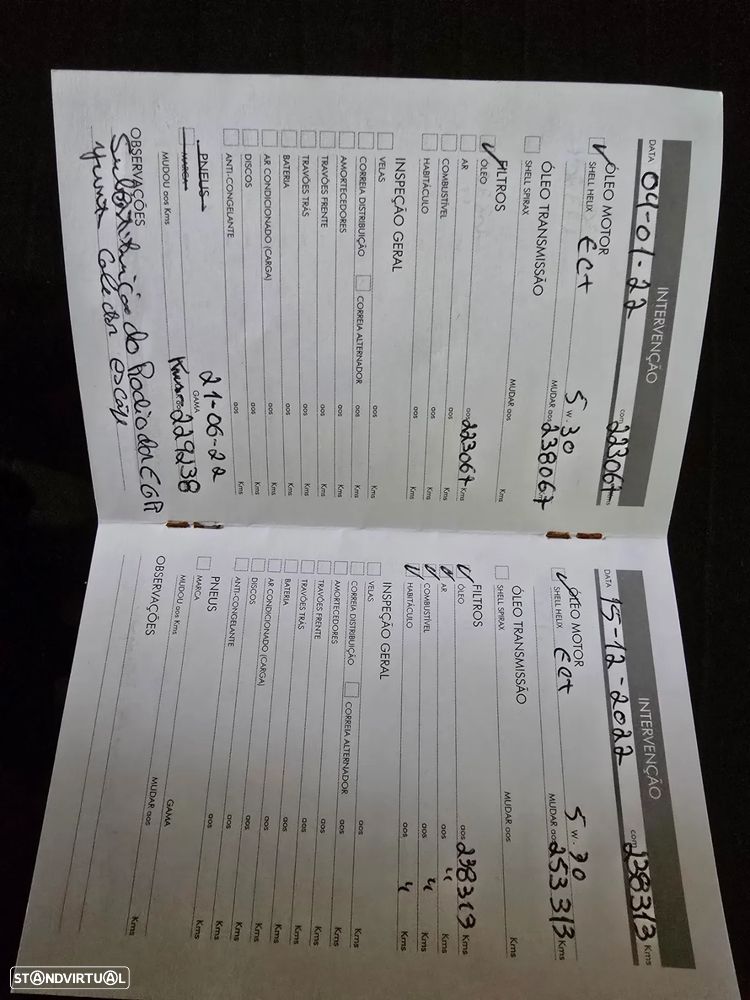 INTERVENÇÃO
DATA 09-01-22 com 223067 Kms
ÓLEO MOTOR
SHELL HELIX ECT 5 w. 30 MUDAR aos 238067 Kms
ÓLEO TRANSMISSÃO
SHELL SPIRAX MUDAR aos Kms
FILTROS
ÓLEO
AR aos 223067 Kms
COMBUSTÍVEL aos Kms
HABITÁCULO aos Kms
INSPEÇÃO GERAL
VELAS aos Kms
CORREIA DISTRIBUIÇÃO CORREIA ALTERNADOR aos Kms
AMORTECEDORES aos Kms
TRAVÕES FRENTE aos Kms
TRAVÕES TRÁS aos Kms
BATERIA aos Kms
AR CONDICIONADO (CARGA) aos Kms
DISCOS aos Kms
ANTI-CONGELANTE aos Kms
PNEUS 21-06-22
MARCA GAMA
MUDOU aos Kms Kms 229238
OBSERVAÇÕES
Substituição do Radiador EGR
junta Coletor escape
INTERVENÇÃO
DATA 15-12-2022 com 238313 Kms
ÓLEO MOTOR
SHELL HELIX ECT 5 w. 30 MUDAR aos 253313 Kms
ÓLEO TRANSMISSÃO
SHELL SPIRAX MUDAR aos Kms
FILTROS
ÓLEO aos 238313 Kms
AR aos " Kms
COMBUSTÍVEL aos " Kms
HABITÁCULO aos " Kms
INSPEÇÃO GERAL
VELAS
CORREIA DISTRIBUIÇÃO CORREIA ALTERNADOR aos Kms
AMORTECEDORES aos Kms
TRAVÕES FRENTE aos Kms
TRAVÕES TRÁS aos Kms
BATERIA aos Kms
AR CONDICIONADO (CARGA) aos Kms
DISCOS aos Kms
ANTI-CONGELANTE aos Kms
PNEUS
MARCA GAMA
MUDOU aos Kms MUDAR aos Kms
OBSERVAÇÕES
STANDVIRTUAL